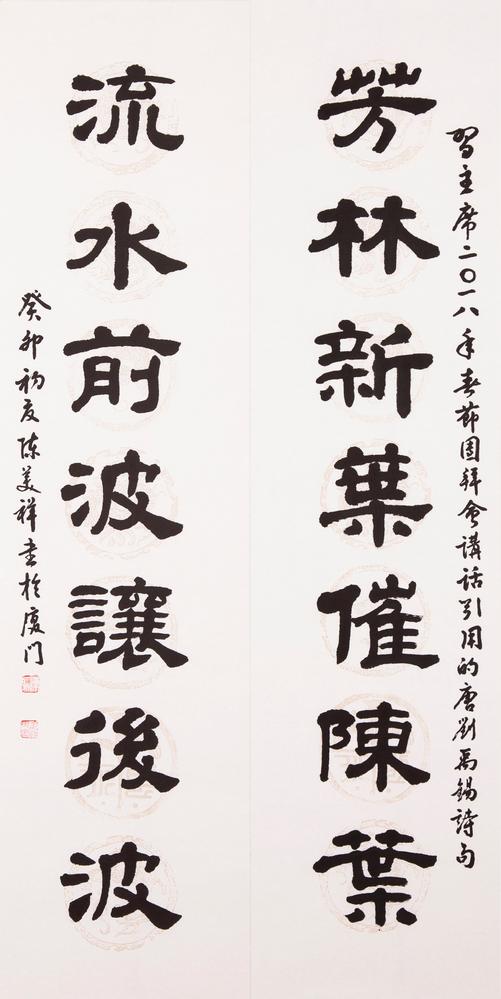 習主席二〇一八年春節團拜會講話引用的唐劉禹錫詩句
芳林新葉催陳葉
流水前波讓後波
癸卯初夏陈美祥書於廈门